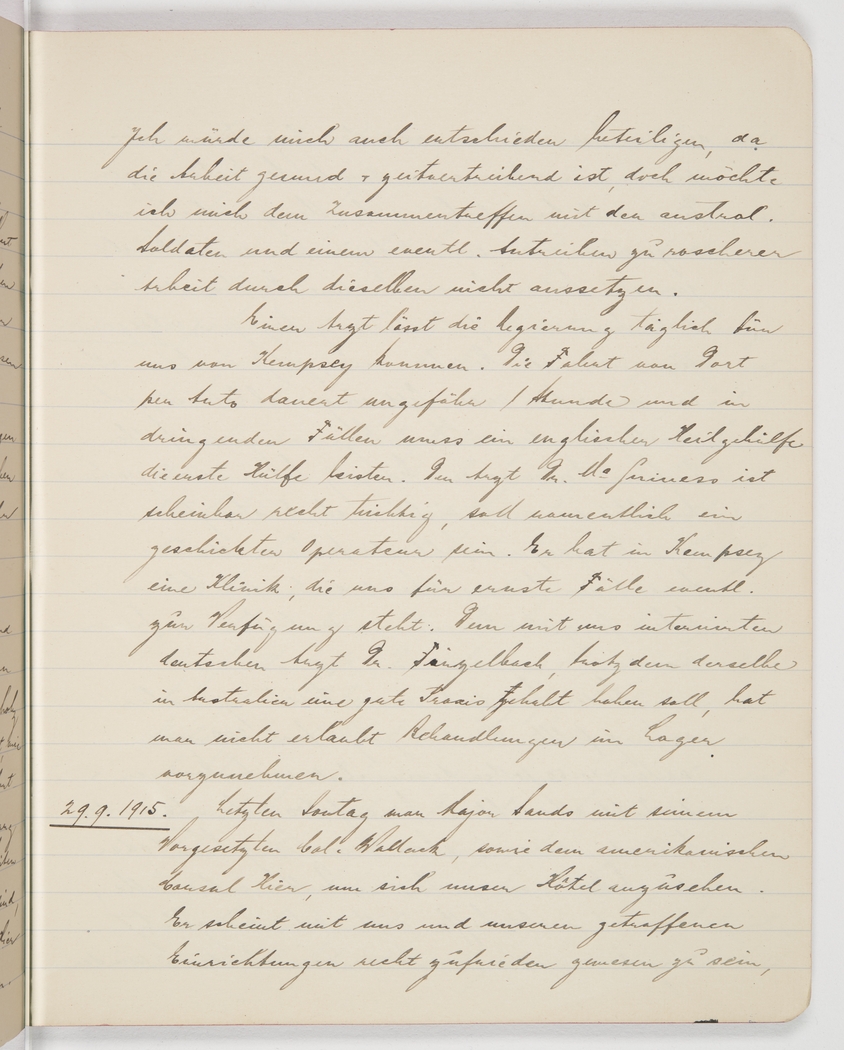 Ich würde mich auch entschieden beteiligen, da
die Arbeit gesund + zeitvertreibend ist, doch möchte
ich mich dem Zusammentreffen mit den austral.
Soldaten und einem eventl. Antreiben zu rascherer
Arbeit durch dieselben nicht aussetzen.
Einen Arzt lässt die Regierung täglich für
uns von Kempsey kommen. Die Fahrt von Dort
per Auto dauert ungefähr 1 Stunde und in
dringenden Fällen muss ein englischer Heilgehülfe
die erste Hülfe leisten. Der Arzt Dr. Mc Guiness ist
scheinbar recht tüchtig, soll namentlich ein
geschickter Operateur sein. Er hat in Kempsey
eine Klinik, die uns für ernste Fälle eventl.
zur Verfügung steht. Dem mit uns internierten
deutschen Arzt Dr. trotzdem derselbe
in Australien eine gute Praxis gehabt haben soll, hat
man nicht erlaubt Behandlungen im Lager
vorzunehmen.
29.9.1915. Letzten Sontag war Major Sands mit seinem
Vorgesetzten Col. Wallack, sowie dem amerikanischen
Consul Hier, um sich unser Hôtel anzusehen.
Er scheint mit uns und unseren getroffenen
Einrichtungen recht zufrieden gewesen zu sein,